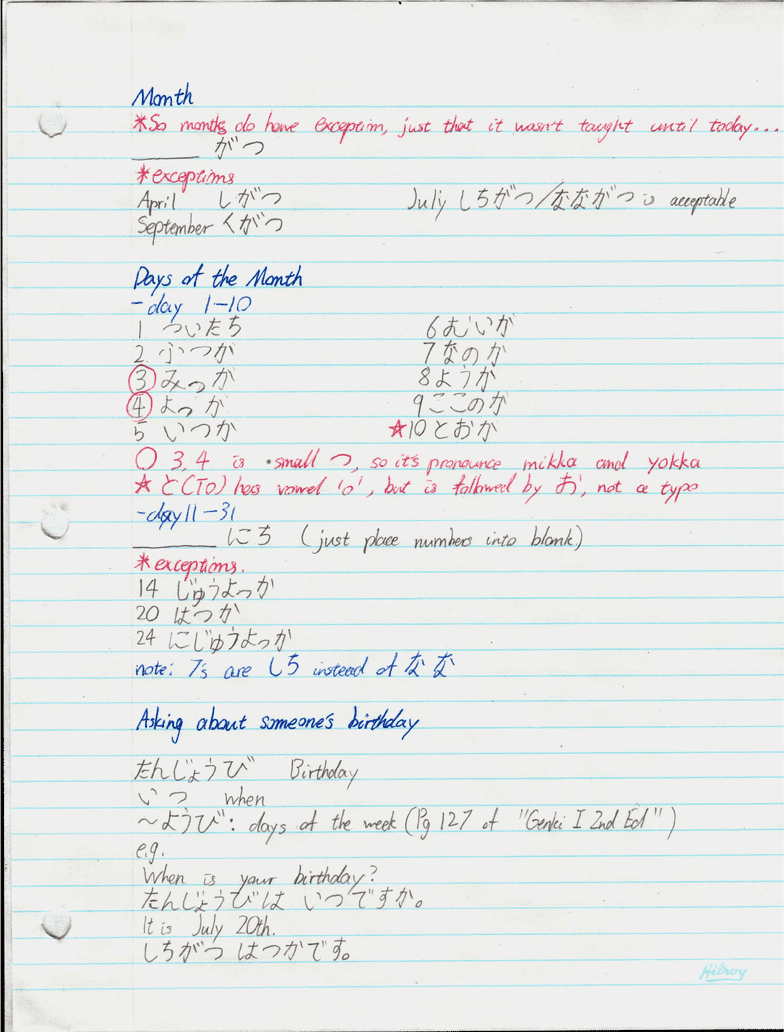 Month
*So months do have exception, just that it wasn't taught until today...
______ がつ
*exceptions
April しがつ July しちがつ/ながつ is acceptable
September くがつ
Days of the Month
-day 1-10
1 ついたち 6 むいか
2 ふつか 7 なのか
3 みっか 8 ようか
4 よっか 9 ここのか
5 いつか ☆10 とおか
○ 3,4 is ・small つ, so it's pronounce mikka and yokka
☆ と(To) has vowel 'o', but is followed by お, not a typo
-day 11-31
______ にち (just place numbers into blank)
*exceptions.
14 じゅうよっか
20 はつか
24 にじゅうよっか
note: 7's are しち instead of なな
Asking about someone's birthday
たんじょうび Birthday
いつ when
~ようび: days of the week (Pg 127 of "Genki I 2nd Ed")
e.g.
When is your birthday?
たんじょうびは いつですか。
It is July 20th.
しちがつ はつかです。
Hilroy